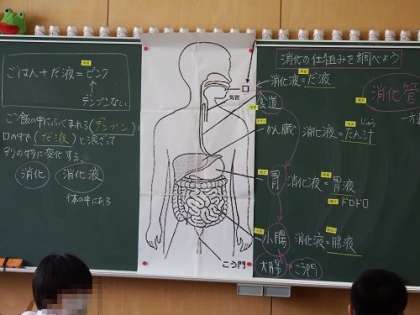 ごはん+だ液=ピンク
↑
デンプンない
ご飯の中にふくまれる(デンプン)は
口の中で(だ液)と混ざって
別のものに変化する。
消化 消化液
体の中にある
気管
こう門
消化の仕組みを調べよう
消化液=だ液
食道
かん臓 消化液=たん汁
胃 消化液=胃液
ドロドロ
小腸 消化液=腸液
大腸 こう門
消化管